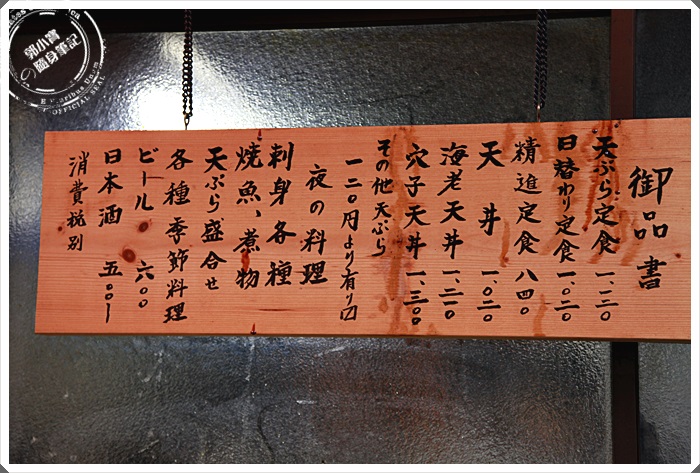 御品書
天ぷら定食 一、一二〇
日替わり定食 一、〇二〇
精進定食 八四〇
天丼 一、〇二〇
海老天丼 一、二一〇
穴子天丼 一、三〇〇
その他天ぷら
一二〇円より有り〼
夜の料理
刺身各種
焼魚、煮物
天ぷら盛合せ
各種季節料理
ビール 六〇〇
日本酒 五〇〇ー
消費税別
郭小寶
の隨身筆記
OFFICIAL SEAL